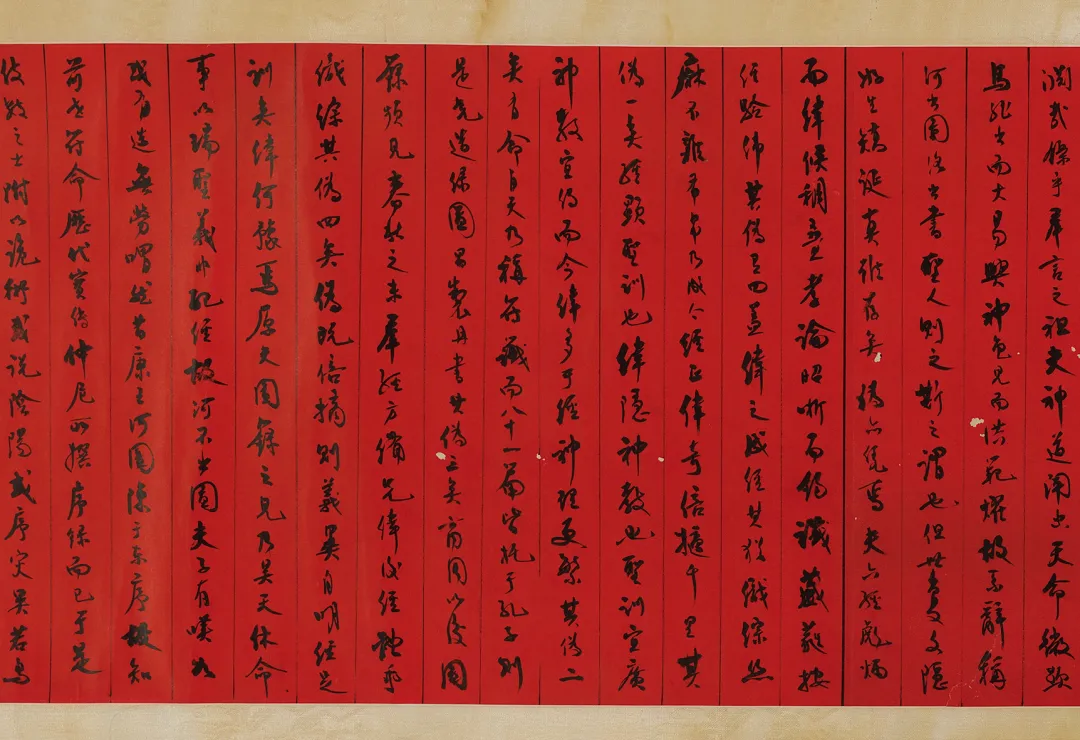 淵哉鑠乎羣言之祖夫神道闡幽天命微顯
馬龍出而大易興神龜見而洪範耀故系辭稱
河出圖洛出書聖人則之斯之謂也但世夐文隱
好生矯誕真雖存矣偽亦憑焉夫六經彪炳
而緯候稠疊孝論昭晰而鈎讖葳蕤按
經驗緯其偽有四蓋緯之成經其猶織綜絲
麻不雜布帛乃成今經正緯奇倍摘千里其
偽一矣經顯聖訓也緯隱神教也聖訓宜廣
神教宜約而今緯多于經神理更繁其偽二
矣有命自天乃稱符讖而八十一篇皆托于孔子則
是堯造綠圖昌製丹書其偽三矣商周以後圖
籙頻見春秋之末羣經方備先緯後經體乖
織綜其偽四矣偽既倍摘則義異自明經足
訓矣緯何豫焉原夫圖籙之見乃昊天休命
事以瑞聖義非配經故河不出圖夫子有嘆如
或可造無勞喟然昔康王河圖陳于東序故知
前世符命歷代寶傳仲尼所撰序錄而已于是
伎數之士附以詭術或說陰陽或序災異若鳥